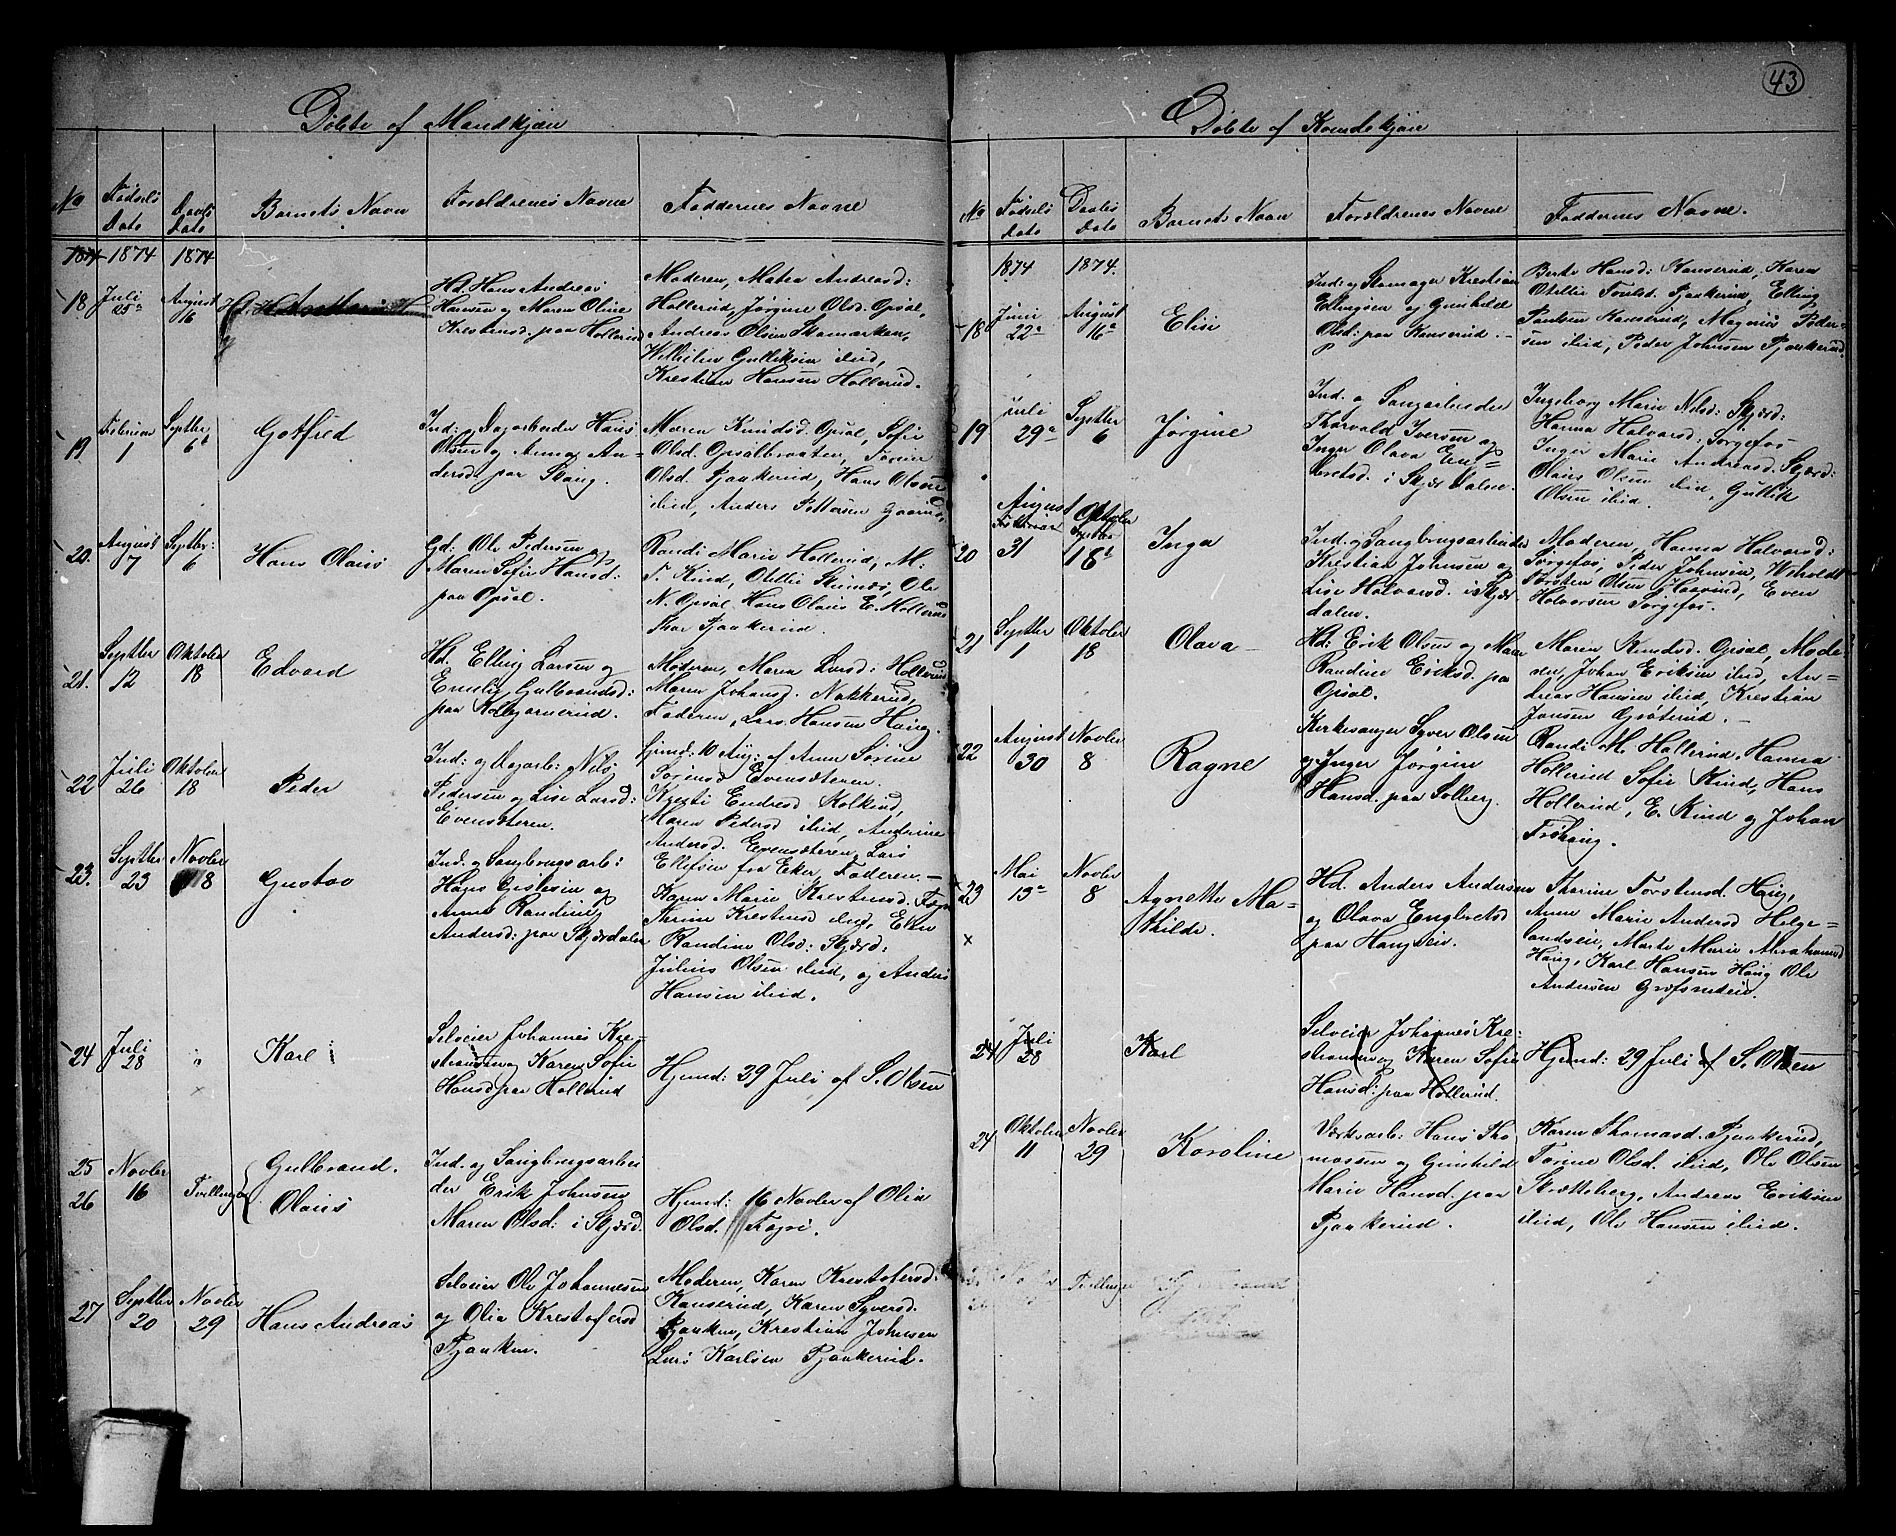 43
Döbte af Mandkjøn
No Fødsels Dato Daabs Dato Barnets Navn Forældrenes Navne Faddernes Navne
1874 1874 1874
18 Juli 25de August 16
Hd. Hans Andreas
Hansen og Maren Oline
Krestensd. paa Hollerud
Moderen, Mathea Andreasd:
Hollerud, Jørgine Olsd. Opsal,
Andreas Olsen Skamarken,
Wilhelm Gulliksen ibid,
Krestian Hansen Hollerud.
19 1 Septbr 6 Gotfred
Ind: og Dagarbeider Hans
Olsen og Anna An-
dersd: paa Skoug.
Maren Knudsd. Opsal, Sofie
Olsd. Opsalbraaten,
Olsd. Pjaakerud, Hans Olsen
ibid, Anders Pettersen
20. August 7 Septbr: 6 Hans Olaus
Gd: Ole Pedersen og
Maren Sofie Hansd:
paa Opsal.
Randi Marie Hollerud, M.
T. Kind, Otellie Steinsø, Ole
N. Opsal, Hans Olaus E. Hollerud
Thor Pjaakerud.
21. Septbr 12 Oktober 18 Edvard
Hd. Elling Larsen og
Emelie Gulbrandsd:
paa
Moderen, Maren Larsd:
Maren Johansd. Nakkerud,
Faderen, Lars Hansen Haug.
22 Juli 26 Oktober 18 Peder
Ind: og Dagarb: Nils
Pedersen og Lise Larsd:
Evensæteren.
Hjemd. 10 Aug: af Anne Sørine
Sørensd. Evensæteren.
Kjersti Endresd.
Maren Pedersd ibid, Andrine
Andersd. Evensæteren, Lars
Ellefsen fra Eker, Faderen.
23. Septbr 23 Novbr 8 Gustav
Ind. og Saugbrugsarb:
Hans Gislesen og
Anne Randine
Andersd: paa Skjærdalen
Karen Marie Krestensd.
Thrine Krestensd ibid, Elen
Randine Olsd: Skjærd:
Julius Olsen ibid, og Anders
Hansen ibid.
24 Juli 28 " Karl
Selveier Johannes Kre-
stiansen og Karen Sofie
Hansd paa Hollerud
Hjemd: 29 Juli af S. Olsen
25 26 Novbr 16 Tvillinger Gulbrand. Olaus
Ind. og Saugbrugsarbei
der Erik Johnsen
Maren Olsd: i Skjærd.
Hjemd: 16 Novbr af Olia
Olsd. Fagri.
27 Septbr 20 Novbr 29 Hans Andreas
Selveier Ole Johannesen
og Olia Krestofersd
Pjaaken.
Moderen, Karen Krestofersd:
Kanserud, Karen Syversd.
Pjaaken, Krestian Johnsen
Lars Karlsen Pjaakerud.
Döbte af Kvindekjøn
No Fødsels Dato Daabs Dato Barnets Navn Forældrenes Navne Faddernes Navne.
1874 1874.
18 Juni 22de August 16de Elise
Ind: og Skomager Krestian
Ellingsen og Gunhild
Olsd: paa Kanserud.
Berte Hansd: Kanserud, Karen
Otellie Torelsd. Pjaakerud, Elling
Paulsen Kanserud, Magnus Peder-
sen ibid, Peder Johnsen Pjaakerud.
19 Juli 29de Septbr 6 Jørgine
Ind. og Saugarbeider
Thorvald Iversen og
Inger Olava Eng-
bretsd. i Skjærdalen.
Ingeborg Marie Nilsd: Skjærd:
Hanna Halvorsd: Sørgefos
Inger Marie Andreasd: Skjærd:
Olaus Olsen ibid, Gullik
Olsen ibid.
20 August 31 Oktober 18de Inga
Ind. og Saugbrugsarbeider
Krestian Johnsen og
Lise Halvorsd. i Skjær
dalen.
Moderen, Hanna Halvorsd:
Sørgefos, Peder Johnsen,
Torsten Olsen, Even
Halvorsen Sørgefos.
21 Septbr 1 Oktober 18 Olava
Hd: Erik Olsen og Maren
Randine Eriksd. paa
Opsal.
Maren Knudsd. Opsal, Mode-
ren, Johan Eriksen ibid, An-
dreas Hansen ibid, Krestian
Jansen Grøterud.
22 August 30 Novbr 8 Ragne
Kirkesanger Syver Olsen
og Inger Jørgine
Hansd. paa Solberg.
Randi M. Hollerud, Hanna
Hollerud, Sofie Kind, Hans
Hollerud, E. Kind og Johan
Frøhaug.
23 Mai 13de Novbr 8 Agnethe Ma-
x thilde.
Hd. Anders Andersen
og Olava Engbretsd
paa Haugseie.
Thorine Torstensd. Haug,
Anne Marie Andersd Helge-
landseie, Marte Marie Abrahamsd
Haug, Karl Hansen Haug Ole
Andersen
24 Juli 28 Karl
Selveier Johannes Kre-
stiansen og Karen Sofie
Hansd: paa Hollerud.
Hjemd: 29 Juli af S. Olsen
24 Oktober 11 Novbr 29 Karoline
Værksarb: Hans Tho
massen og Gunhild
Marie Hansd. paa
Pjaakerud.
Karen Thomasd. Pjaakerud,
Torine Olsd. ibid, Ole Olsen
Skotteberg, Andreas Eriksen
ibid, Ole Hansen ibid.
Tvillinger